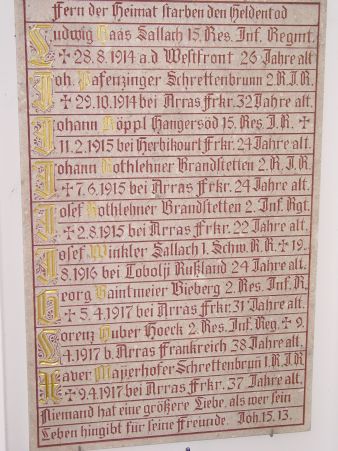 Fern der Heimat starben den Heldentod
Ludwig Haas Sallach 15. Res. Inf. Regmt.
✝ 28.8.1914 a.d Westfront 26 Jahre alt
Joh. Pafenzinger Schrettenbrunn 2.R.I.R.
✝ 29.10.1914 bei Arras Frkr. 32 Jahre alt.
Johann Köppl Hangersöd 15. Res. I.R. ✝
11.2.1915 bei Herbikourt Frkr. 24 Jahre alt.
Johann Rothlehner Brandstetten 2. R.I.R
✝ 7.6.1915 bei Arras Frkr. 24 Jahre alt.
Josef Rothlehner Brandstetten 2. Inf. Rgt.
✝ 2.8.1915 bei Arras Frkr. 22 Jahre alt.
Josef Winkler Sallach 1. Schw. R.R. ✝ 19.
8.1916 bei Tobolji Rußland 24 Jahre alt.
Georg Baintmeier Bieberg 2. Res. Inf. R.
✝ 5.4.1917 bei Arras Frkr. 31 Jahre alt.
Lorenz Huber Hoeck 2. Res. Inf. Reg. ✝ 9.
4.1917 b. Arras Frankreich 38 Jahre alt.
Xaver Majerhofer Schrettenbrun̄ 1. R.I.R
✝ 9.4.1917 bei Arras Frkr. 37 Jahre alt.
Niemand hat eine größere Liebe, als wer sein
Leben hingibt für seine Freunde. Joh. 15. 13.